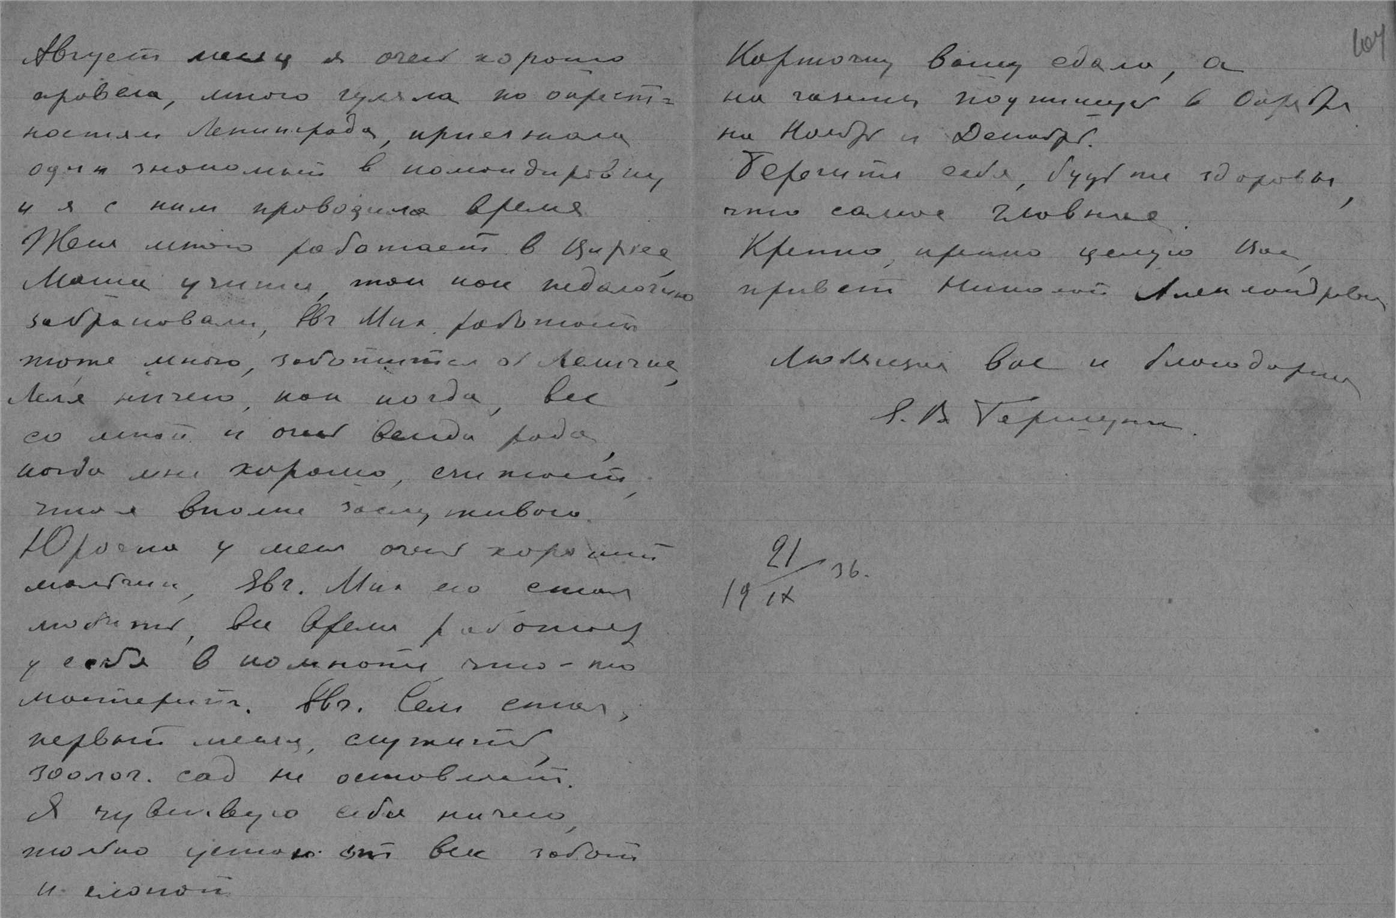 Август месяц я очень хорошо
провела, много гуляла по окрест=
ностям Ленинграда, приезжала
один знакомый в командировку
и я с ним проводила время
Женя много работает в цирке,
Маша учится, так как педологию
забраковали, Евг Мих. работает
тоже много, заботится об Ленчике,
Леля ничего, как когда, все
со мной и очень всегда рада,
когда мне хорошо, считает,
что я вполне заслуживаю.
Юрочка у меня очень хороший
мальчик, Евг. Мих его стал
любить, все время работает
у себя в комнате что-то
мастерит. Евг. Сем стал,
первый месяц, служить,
зоолог. сад не оставляет.
Я чувствую себя ничего,
только устаю от всех забот
и
104
Карточку вашу сдала, а
на газеты подпишусь в Октябре
на Ноябрь и Декабрь.
Берегите себя, будьте здоровы,
что самое главное.
Крепко, крепко целую Вас,
привет Николай Александровичу
Любящая вас и благодарная
Е. В. Гершуни.
21/IX 36.
19